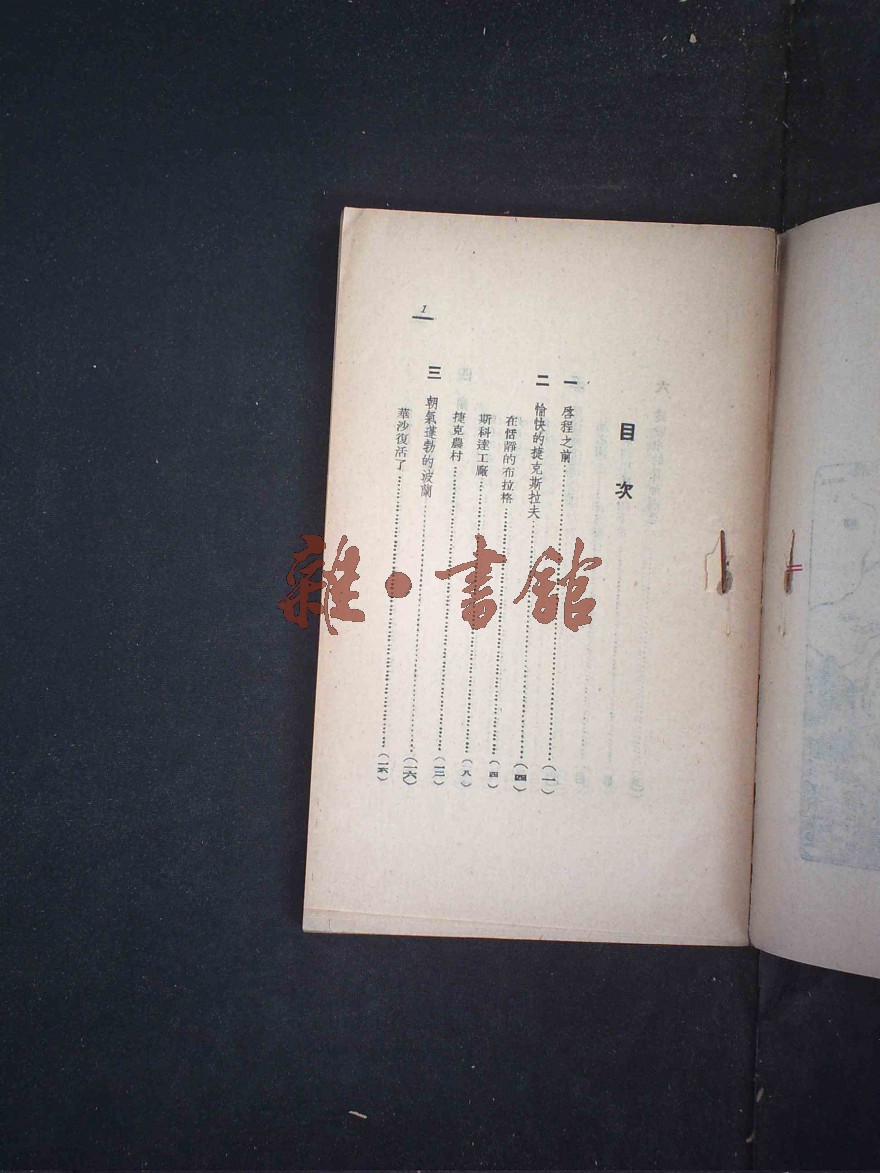 目次
一 啓程之前……(一)
二 愉快的捷克斯拉夫……(四)
在恬靜的布拉格……(四)
斯科達工廠……(八)
捷克農村……(一三)
三 朝氣蓬勃的波蘭……(一六)
華沙復活了……
1
雜·書館